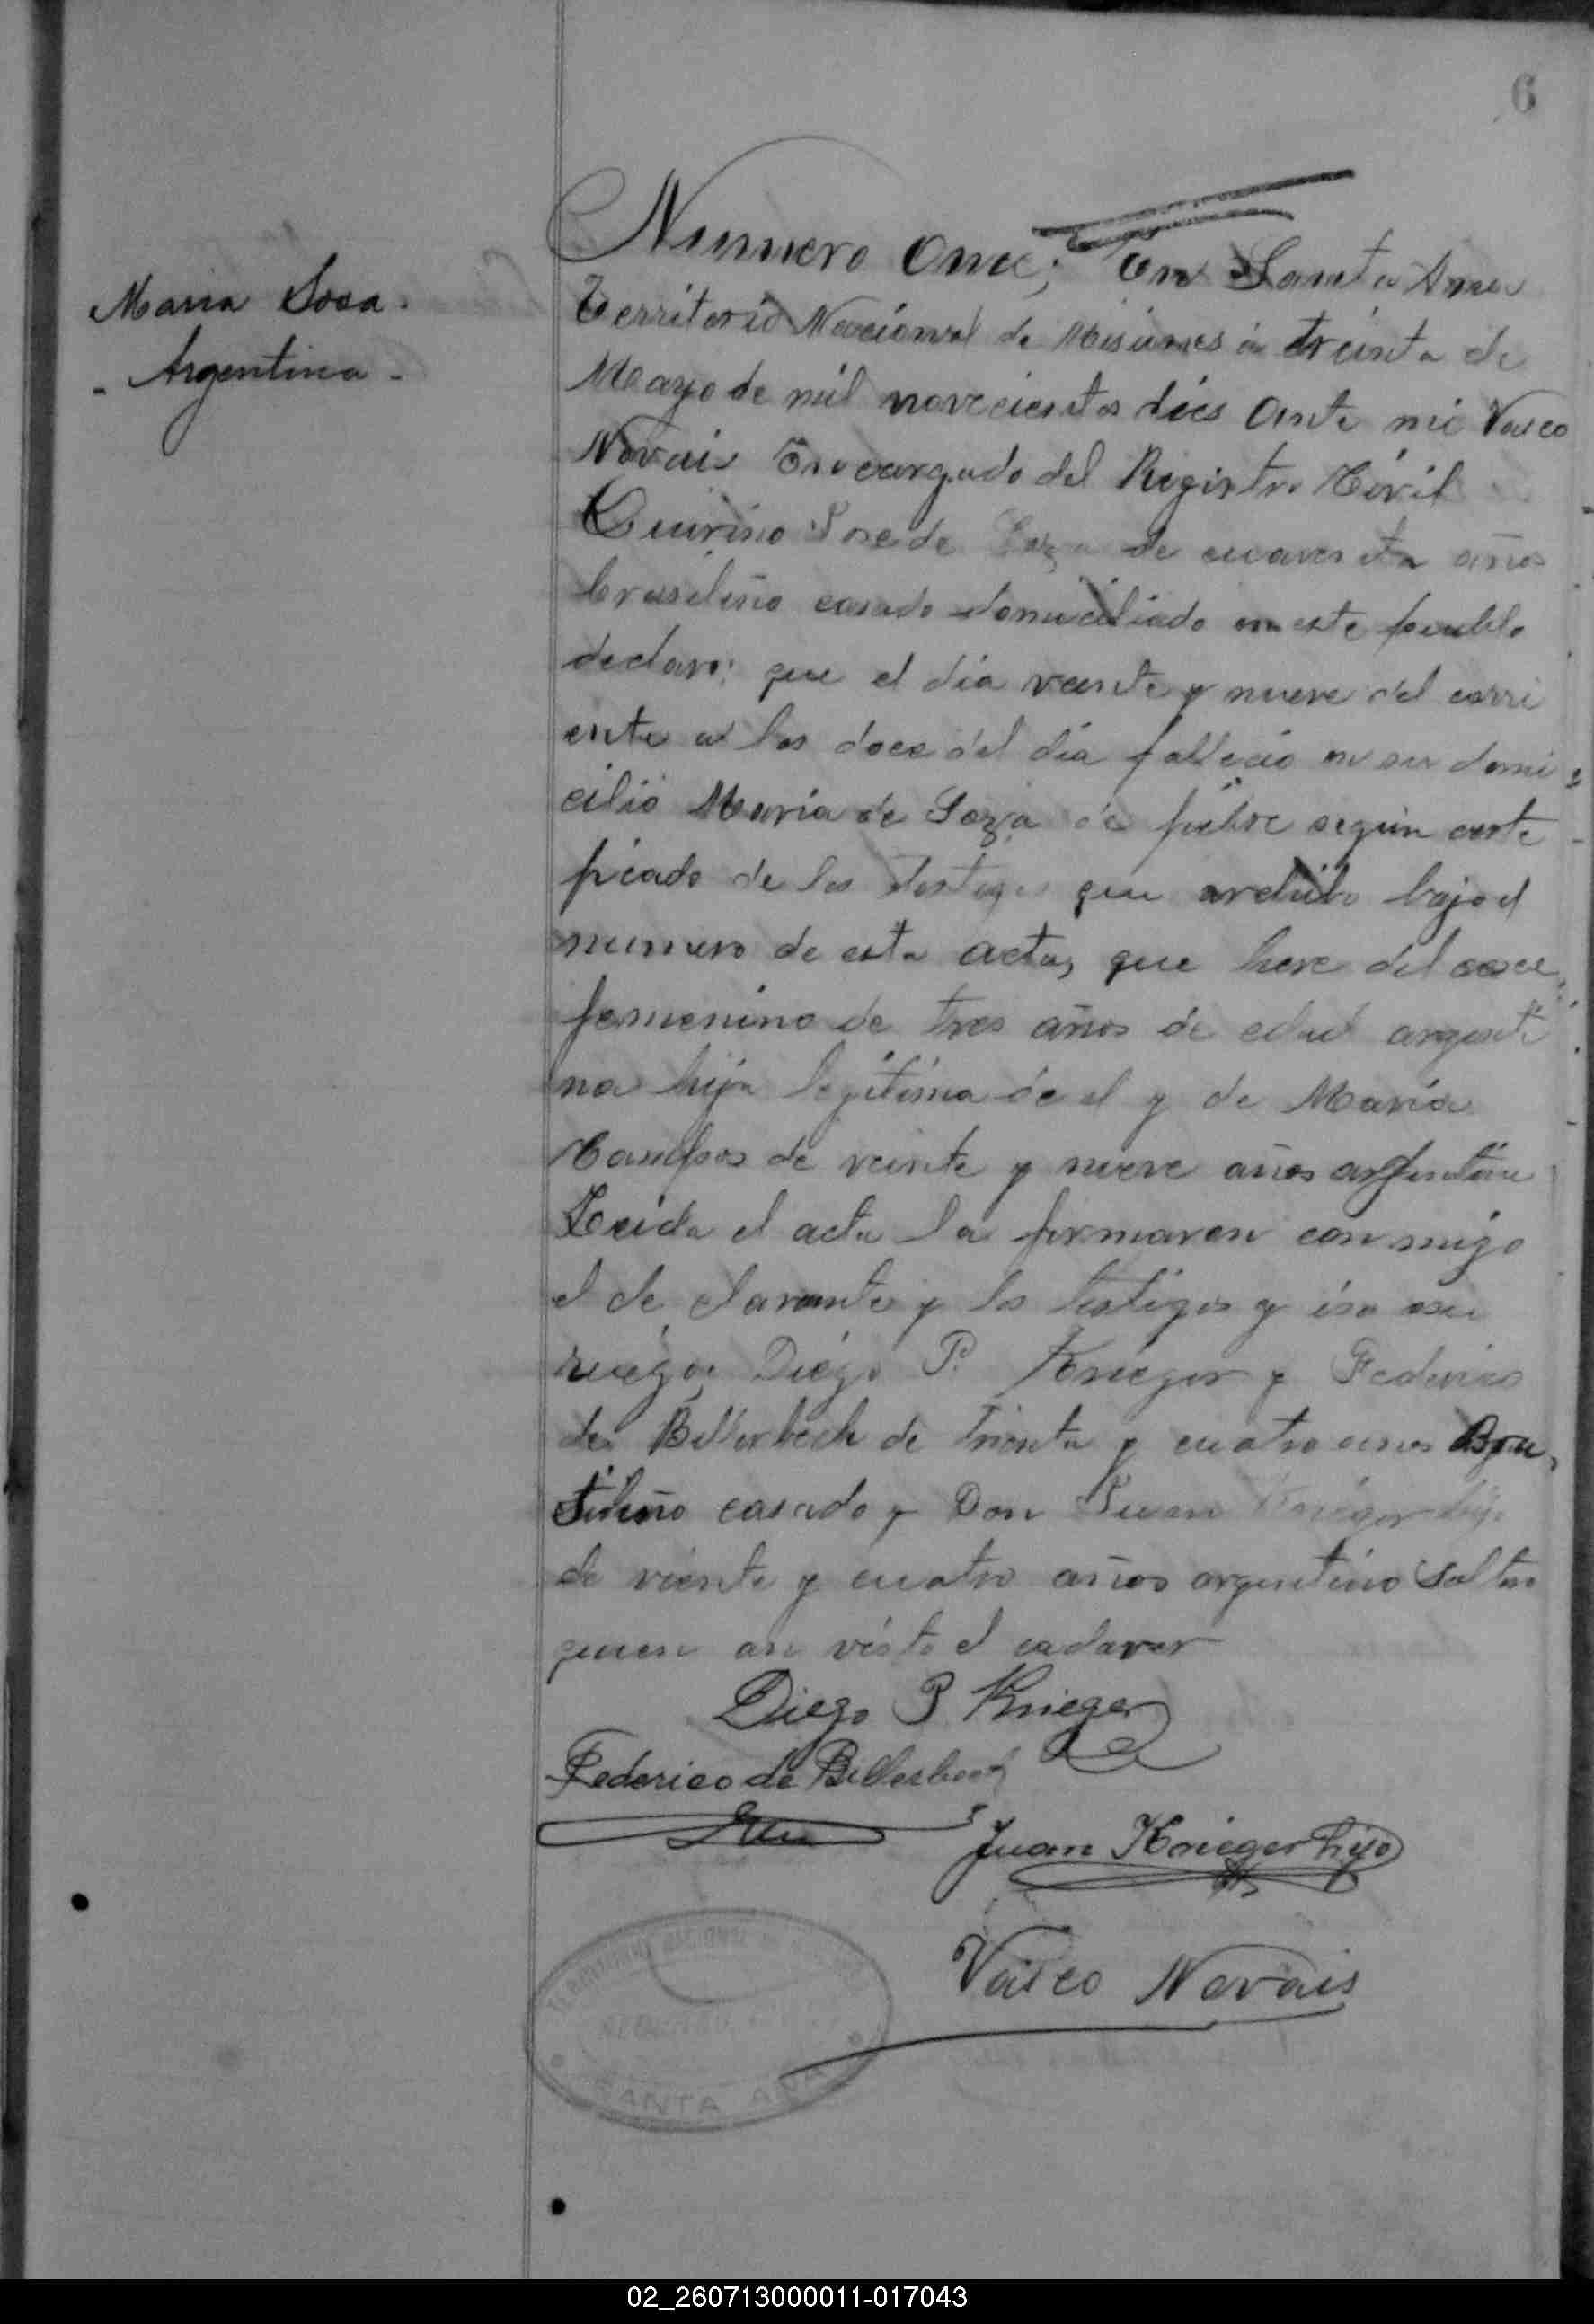 6
Maria Sosa.
- Argentina -
Numero Once; En Santa Ana
Territorio Nacional de Misiones á treinta de
Mayo de mil novecientos dies Ante mi Vasco
Novais Encargado del Registro Civil
Quirino Jose de Soza de cuarenta años
brasileño casado domiciliado en este pueblo
declaro: que el dia veinte y nueve del corri
ente a las doce del dia fallecio en su domi
cilio Maria de Soza de fiebre segun certe
ficado de los testigos que archibo bajo el
numero de esta acta, que here del sexe
femenino de tres años de edad argenti
na hija legitima de el y de Maria
Campos de veinte y nueve años argentina
Leida el acta la firmaron conmigo
el declarante y los testigos y iso asu
ruego, Diego P. Krieger y Federico
de Billerbeck de trienta y cuatro anos Bra
sileño casado y Don Juan Krieger hijo
de viente y cuatro años argentino Soltero
quien an visto el cadaver
Diego P Krieger
Federico de Billerbeck
Juan Krieger hijo
Vasco Novais
TERRITORIO NACIONAL DE
REGISTRO CIVIL
SANTA ANA
02_260713000011-017043